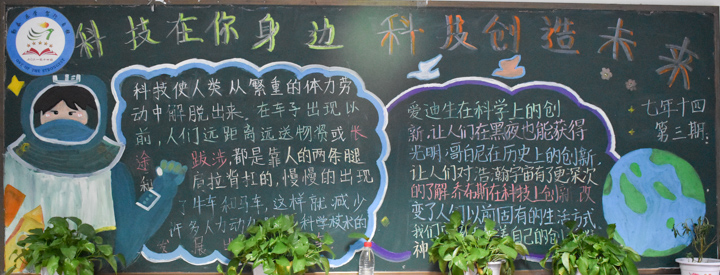 科技在你身边 科技创造未来
七年十四
第三期:
科技使人类从繁重的体力劳
动中解脱出来。在车子出现以
前,人们远距离远送物资或长
途跋涉,都是靠人的两条腿
和肩拉背扛的,慢慢的出现
了牛车和马车,这样能减少
许多人力动
科学技术的
发展
爱迪生在科学上的创
新,让人们在黑夜也能获得
光明,哥白尼在历史上的创新,
让人们对浩瀚宇宙有更深次
的了解,乔布斯在科技上创新,改
变了人们以前固有的生活方式
我们
自己的创
神